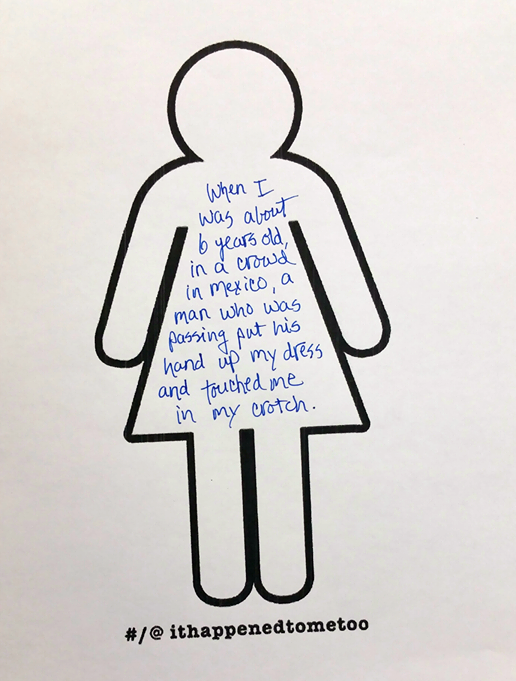 When I
was about
6 years old,
in a crowd
in mexico, a
man who was
passing put his
hand up my dress
and touched me
in my crotch.
#/@ ithappenedtometoo